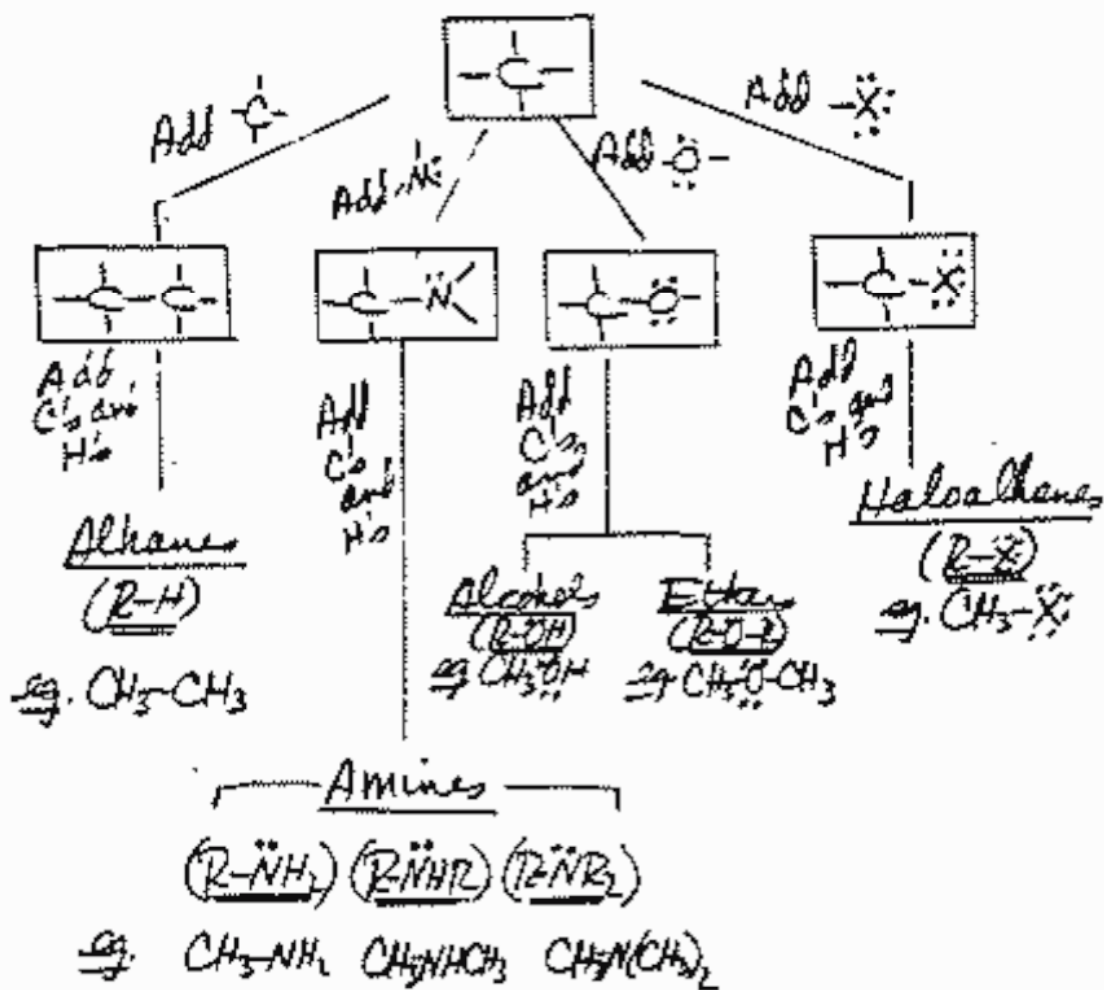 —C—
Add —C—
Add —N:
Add —Ö—
Add —X:
—C—C—
—C—N
—C—O—
—C—X:
Add
C's and
H's
Add
C's
and
H's
Add
C's
and
H's
Add
C's and
H's
Alkanes
(R–H)
eg. CH3–CH3
Alcohols
(R–ÖH)
eg CH3ÖH
Ethers
(R–Ö–R)
eg CH3–Ö–CH3
Haloalkanes
(R–X)
eg. CH3–X:
Amines
(R–N̈H2) (R–N̈HR) (R–N̈R2)
eg. CH3–NH2 CH3NHCH3 CH3N(CH3)2